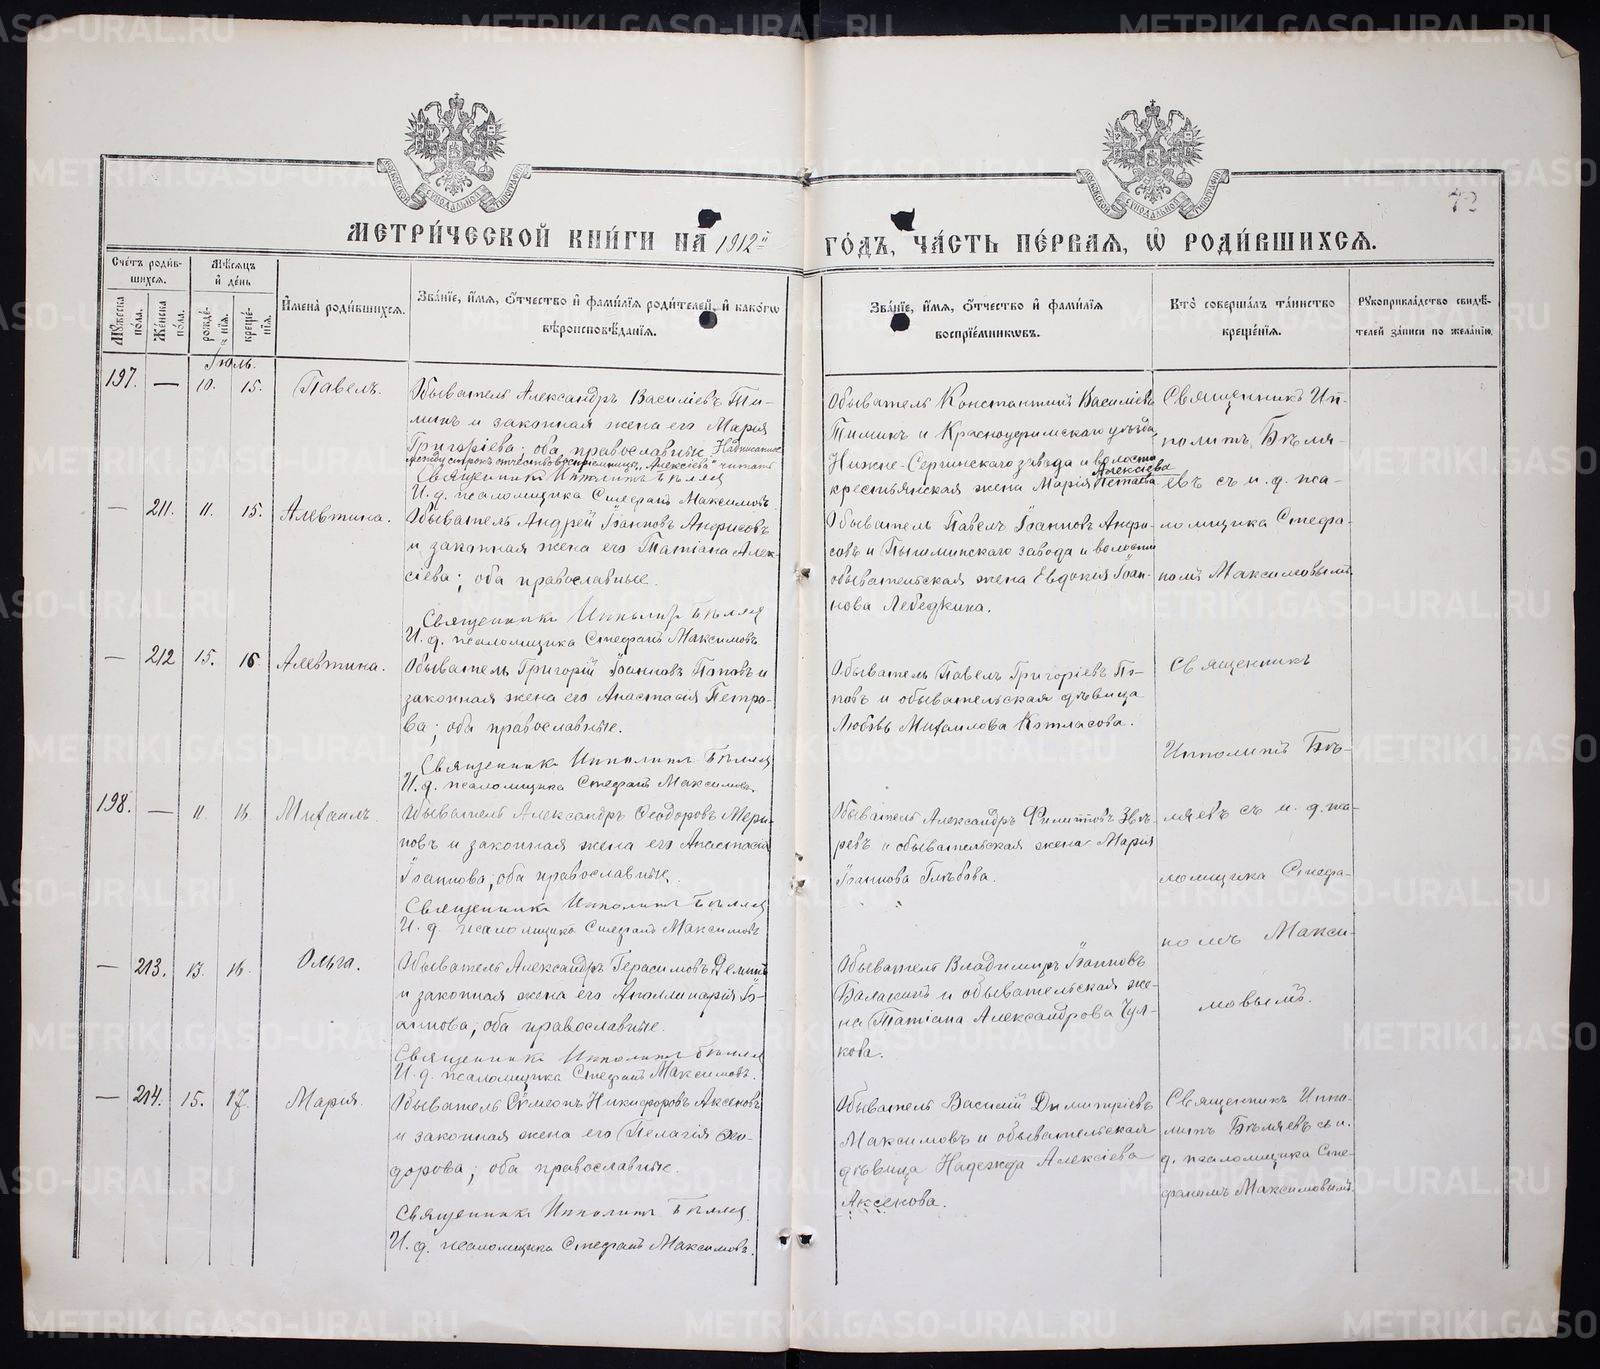 METRIKI.GASO-URAL.RU
МОСКОВСКОЙ СѴНОДАЛЬНОЙ ТИПОГРАФІИ
МОСКОВСКОЙ СѴНОДАЛЬНОЙ ТИПОГРАФІИ
72
МЕТРИ́ЧЕСКОЙ КНИ́ГИ НА 1912й ГО́ДЪ, ЧА́СТЬ ПЕ́РВАЯ, Ѽ РОДИ́ВШИХСѦ.
Сче́тъ роди́в-
шихсѧ.
Мѣ́сѧцъ
и҆ де́нь
И҆мена̀ роди́вшихсѧ.
Зва́нїе, и҆́мѧ, ѻ҆́тчество и҆ фами́лїѧ роди́телей, и҆ како́гѡ
вѣроисповѣ́данїѧ.
Зва́нїе, и҆́мѧ, ѻ҆́тчество и҆ фами́лїѧ
воспрїе́мникѡвъ.
Кто̀ соверша́лъ та́инство
креще́нїѧ.
Рꙋкоприкла́дство свидѣ́-
телей за́писи по жела́нїю.
Мꙋ́жеска
по́ла.
Же́нска
по́ла.
рожде́-
нїѧ.
креще́-
нїѧ.
Іюль.
197. — 10. 15. Павелъ.
Обыватель Александръ Василіевъ Ти-
минъ и законная жена его Марія
Григоріева; оба православные. Надписанное
между строкъ отчество воспріемницы „Алексіева" читать
Священникъ Ипполитъ Бѣляевъ
И. д. псаломщика Стефанъ Максимовъ
Обыватель Константинъ Василіевъ
Тиминъ и Красноуфимскаго уѣзда,
Нижне-Сергинскаго завода и волости
Алексіева
крестьянская жена Марія
Священникъ Ип-
политъ Бѣля-
евъ съ и. д. пса-
ломщика Стефа-
номъ Максимовымъ.
— 211. 11. 15. Алевтина.
Обыватель Андрей Іоанновъ Анфисовъ
и законная жена его Татіана Алек-
сіева; оба православные.
Священникъ Ипполитъ Бѣляевъ
И. д. псаломщика Стефанъ Максимовъ
Обыватель Павелъ Іоанновъ Анфи-
совъ и Пышминскаго завода и волости
обывательская жена Евдокия Іоан-
нова Лебедкина.
— 212 15. 16 Алевтина.
Обыватель Григорій Іоанновъ Поповъ и
законная жена его Анастасія Петро-
ва; оба православные.
Священникъ Ипполитъ Бѣляевъ
И. д. псаломщика Стефанъ Максимовъ.
Обыватель Павелъ Григоріевъ По-
повъ и обывательская дѣвица
Любовь Михаилова Котласова.
Священникъ
Ипполитъ Бѣ-
ляевъ съ и. д. пса-
ломщика Стефа-
номъ Макси-
мовымъ.
198. — 11. 16. Михаилъ.
Обыватель Александръ Ѳеодоровъ Мери-
новъ и законная жена его Анастасія
Іоаннова; оба православные.
Священникъ Ипполитъ Бѣляевъ
И. д. псаломщика Стефанъ Максимовъ
Обыватель Александръ Филипповъ Звѣ-
ревъ и обывательская жена Марія
Іоаннова Глѣбова.
— 213. 13. 16. Ольга.
Обыватель Александръ Герасимовъ Деминъ
и законная жена его Аполлинарія Іо-
аннова; оба православные.
Священникъ Ипполитъ Бѣляевъ
И. д. псаломщика Стефанъ Максимовъ.
Обыватель Владимиръ Іоанновъ
Балакинъ и обывательская же-
на Татіана Александрова Чул-
кова.
— 214. 15. 17. Марія.
Обыватель Сѵмеонъ Никифоровъ Аксеновъ
и законная жена его Пелагія Ѳео-
дорова; оба православные.
Священникъ Ипполитъ Бѣляевъ
И. д. псаломщика Стефанъ Максимовъ.
Обыватель Василій Димитріевъ
Максимовъ и обывательская
дѣвица Надежда Алексіева
Аксенова.
Священникъ Иппо-
литъ Бѣляевъ съ и.
д. псаломщика Сте-
фаномъ Максимовымъ.